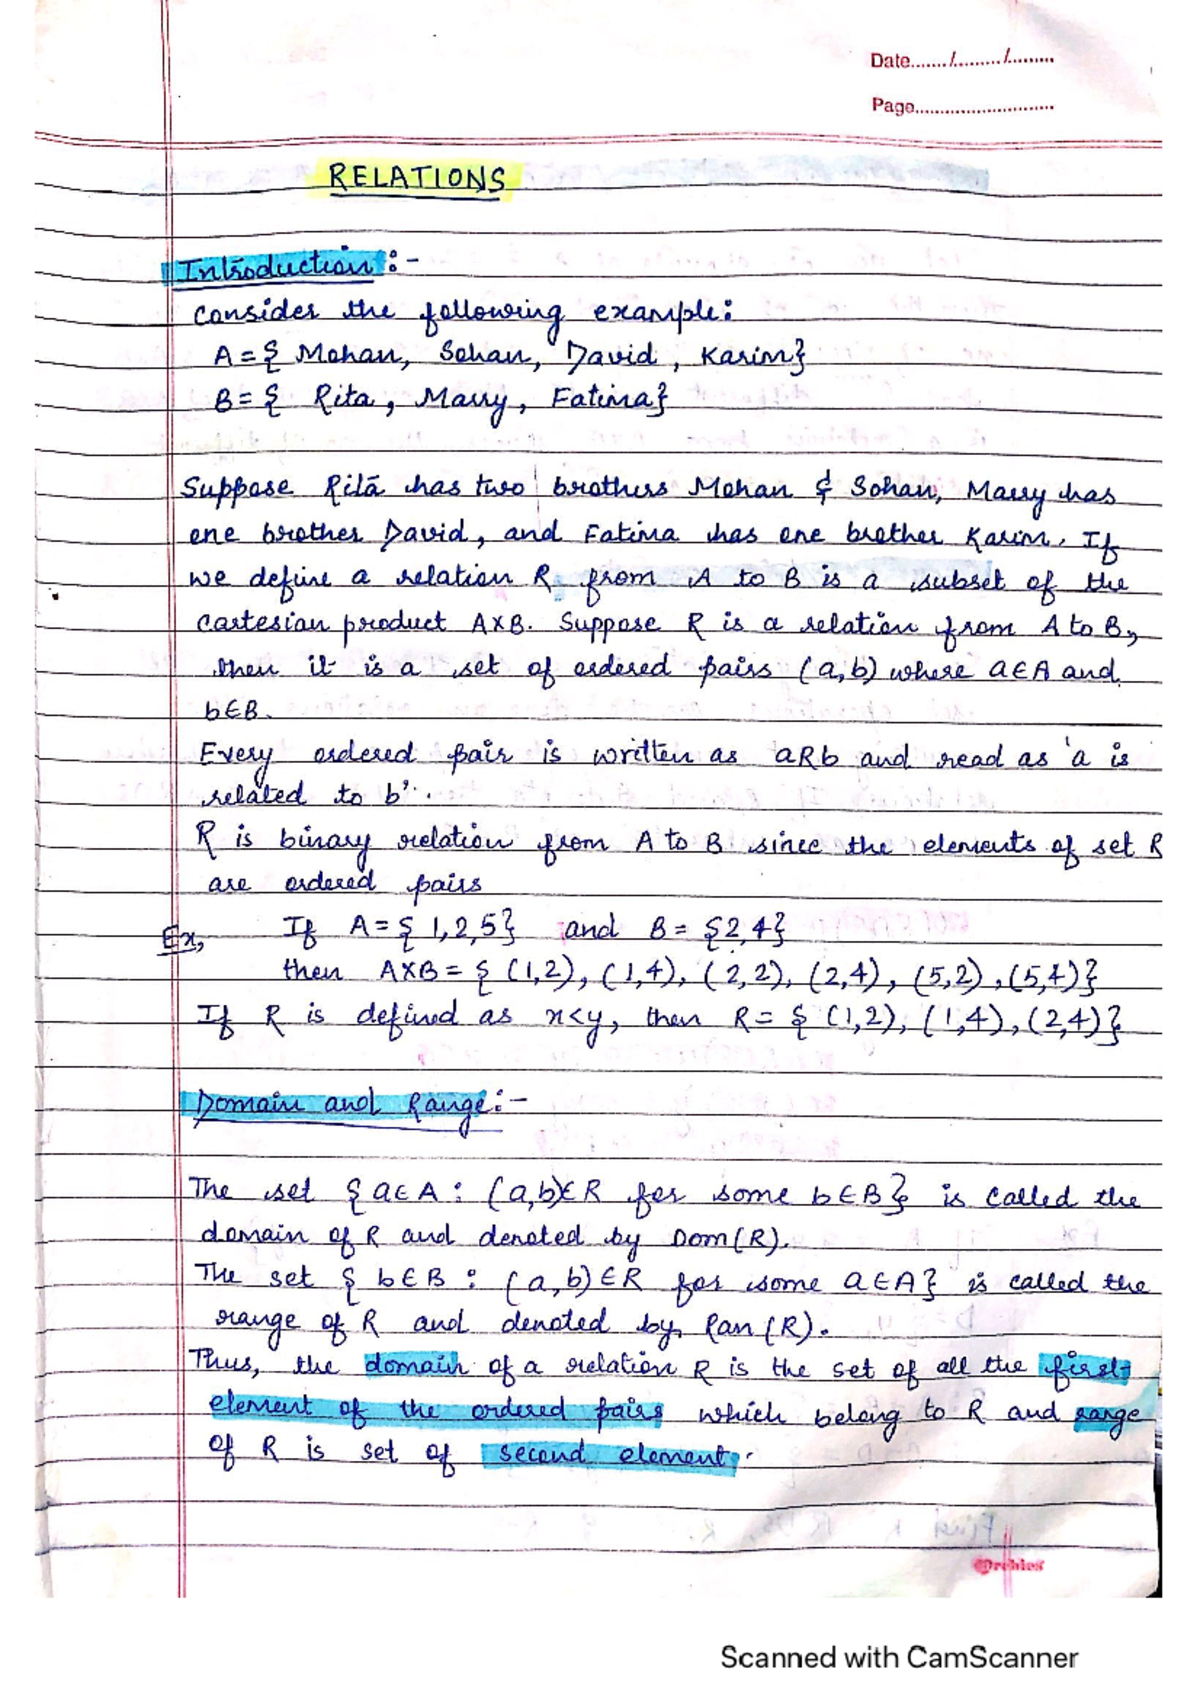 Date......./........./.........
Page............................
RELATIONS
Introduction :-
Consider the following example:
A = { Mohan, Sohan, David, Karim}
B = { Rita, Marry, Fatima}
Suppose Rita has two brothers Mohan & Sohan, Marry has
one brother David, and Fatima has one brother Karim. If
we define a relation R from A to B is a subset of the
Cartesian product A×B. Suppose R is a relation from A to B,
then it is a set of ordered pairs (a,b) where a∈A and
b∈B.
Every ordered pair is written as aRb and read as 'a is
related to b'.
R is binary relation from A to B since the elements of set R
are ordered pairs
Ex, If A = { 1,2,5} and B = {2,4}
then A×B = { (1,2), (1,4), (2,2), (2,4), (5,2), (5,4)}
If R is defined as x<y, then R = { (1,2), (1,4), (2,4)}
Domain and Range :-
The set { a∈A : (a,b)∈R for some b∈B} is called the
domain of R and denoted by Dom(R).
The set { b∈B : (a,b)∈R for some a∈A} is called the
range of R and denoted by Ran(R).
Thus, the domain of a relation R is the set of all the first
element of the ordered pairs which belong to R and range
of R is set of second element.
Scanned with CamScanner